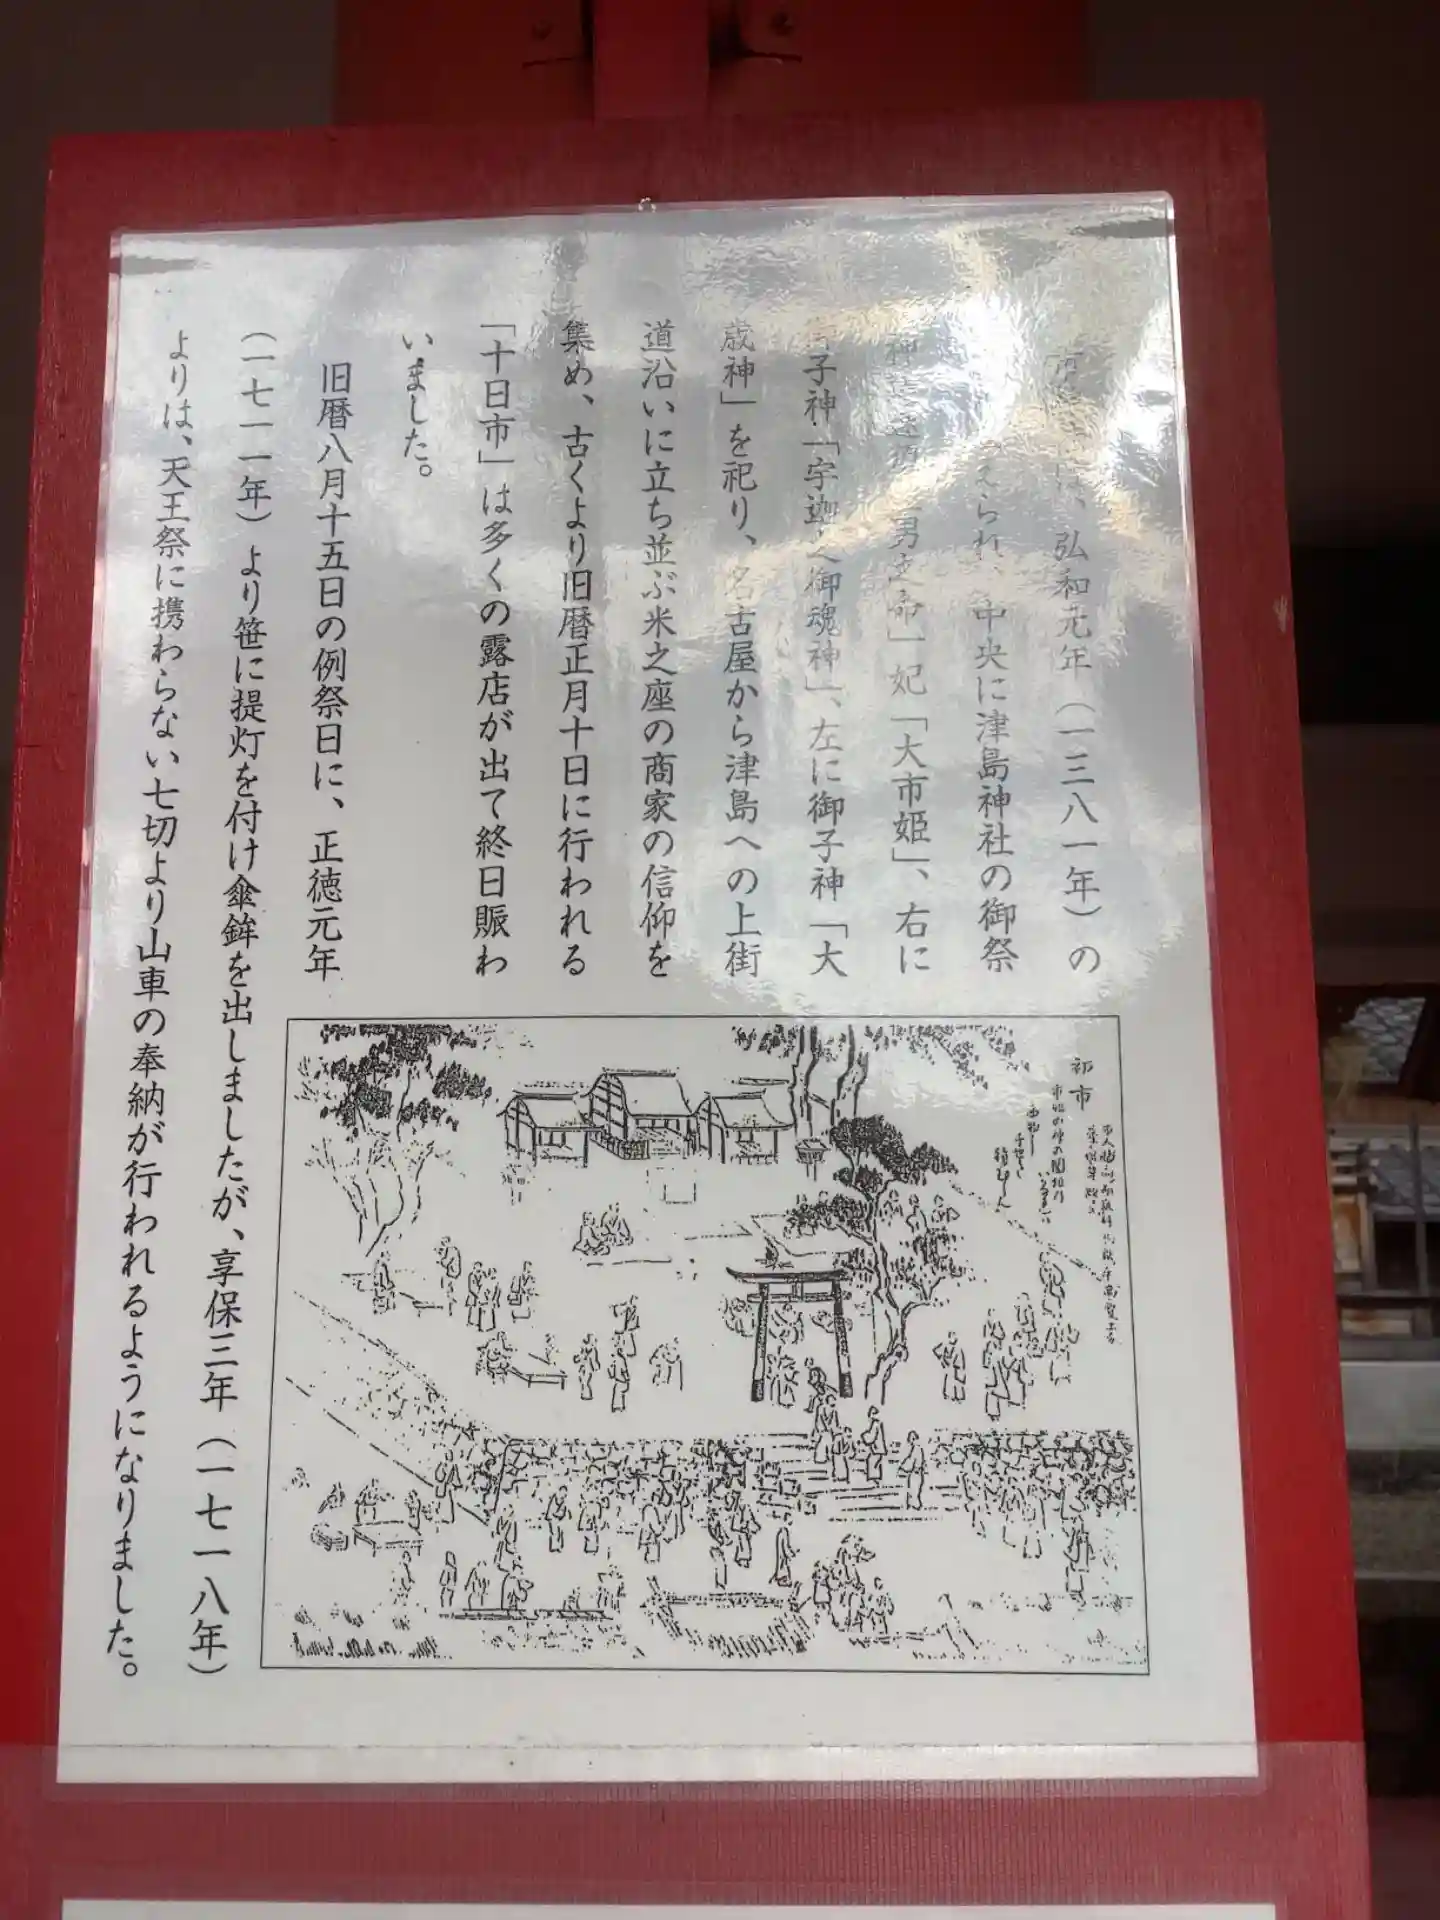 弘和元年（一三八一年）の
えられ、中央に津島神社の御祭
男之命」妃「大市姫」、右に
子神「宇迦之御魂神」、左に御子神「大
歳神」を祀り、名古屋から津島への上街
道沿いに立ち並ぶ米之座の商家の信仰を
集め、古くより旧暦正月十日に行われる
「十日市」は多くの露店が出て終日賑わ
いました。
旧暦八月十五日の例祭日に、正徳元年
（一七一一年）より笹に提灯を付け傘鉾を出しましたが、享保三年（一七一八年）
よりは、天王祭に携わらない七切より山車の奉納が行われるようになりました。
初市